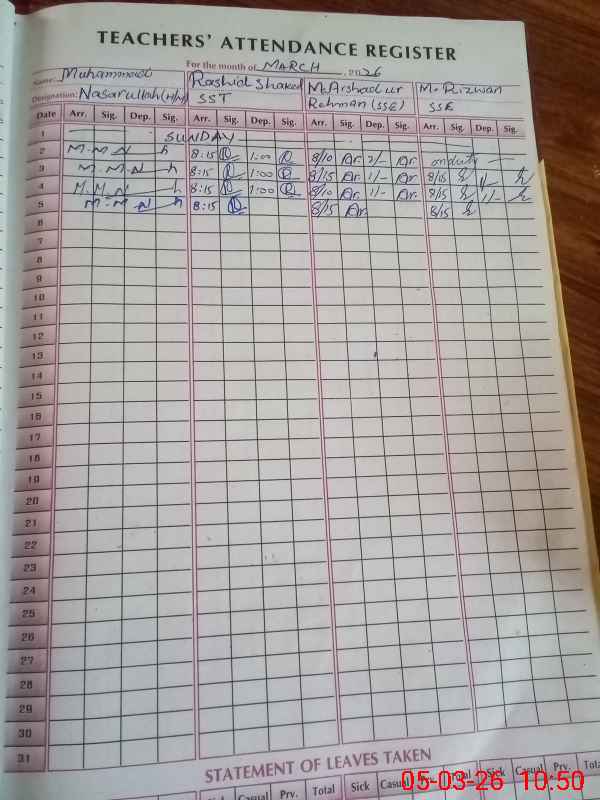 TEACHERS' ATTENDANCE REGISTER
For the month of MARCH, 2026
Name: Muhammad Rashid M. Arshad ur M. Rizwan
Designation: Nasarullah (H/M) SST Rehman (SSE) SSE
Date Arr. Sig. Dep. Sig. Arr. Sig. Dep. Sig. Arr. Sig. Dep. Sig. Arr. Sig. Dep. Sig.
1 SUNDAY
2 M.M.N 8:15 1:00 8/10 Ar 2/- Ar on duty
3 M.M.N 8:15 1:00 8/15 Ar 1/- Ar 8/15 1/-
4 M.M.N 8:15 1:00 8/10 Ar 1/- Ar 8/15 1/-
5 M.M.N 8:15 8/15 Ar 8/15
6
7
8
9
10
11
12
13
14
15
16
17
18
19
20
21
22
23
24
25
26
27
28
29
30
31
STATEMENT OF LEAVES TAKEN
Sick Casual Prv. Total Sick Casual Prv. Total Sick Casual Prv. Total
05-03-26 10:50